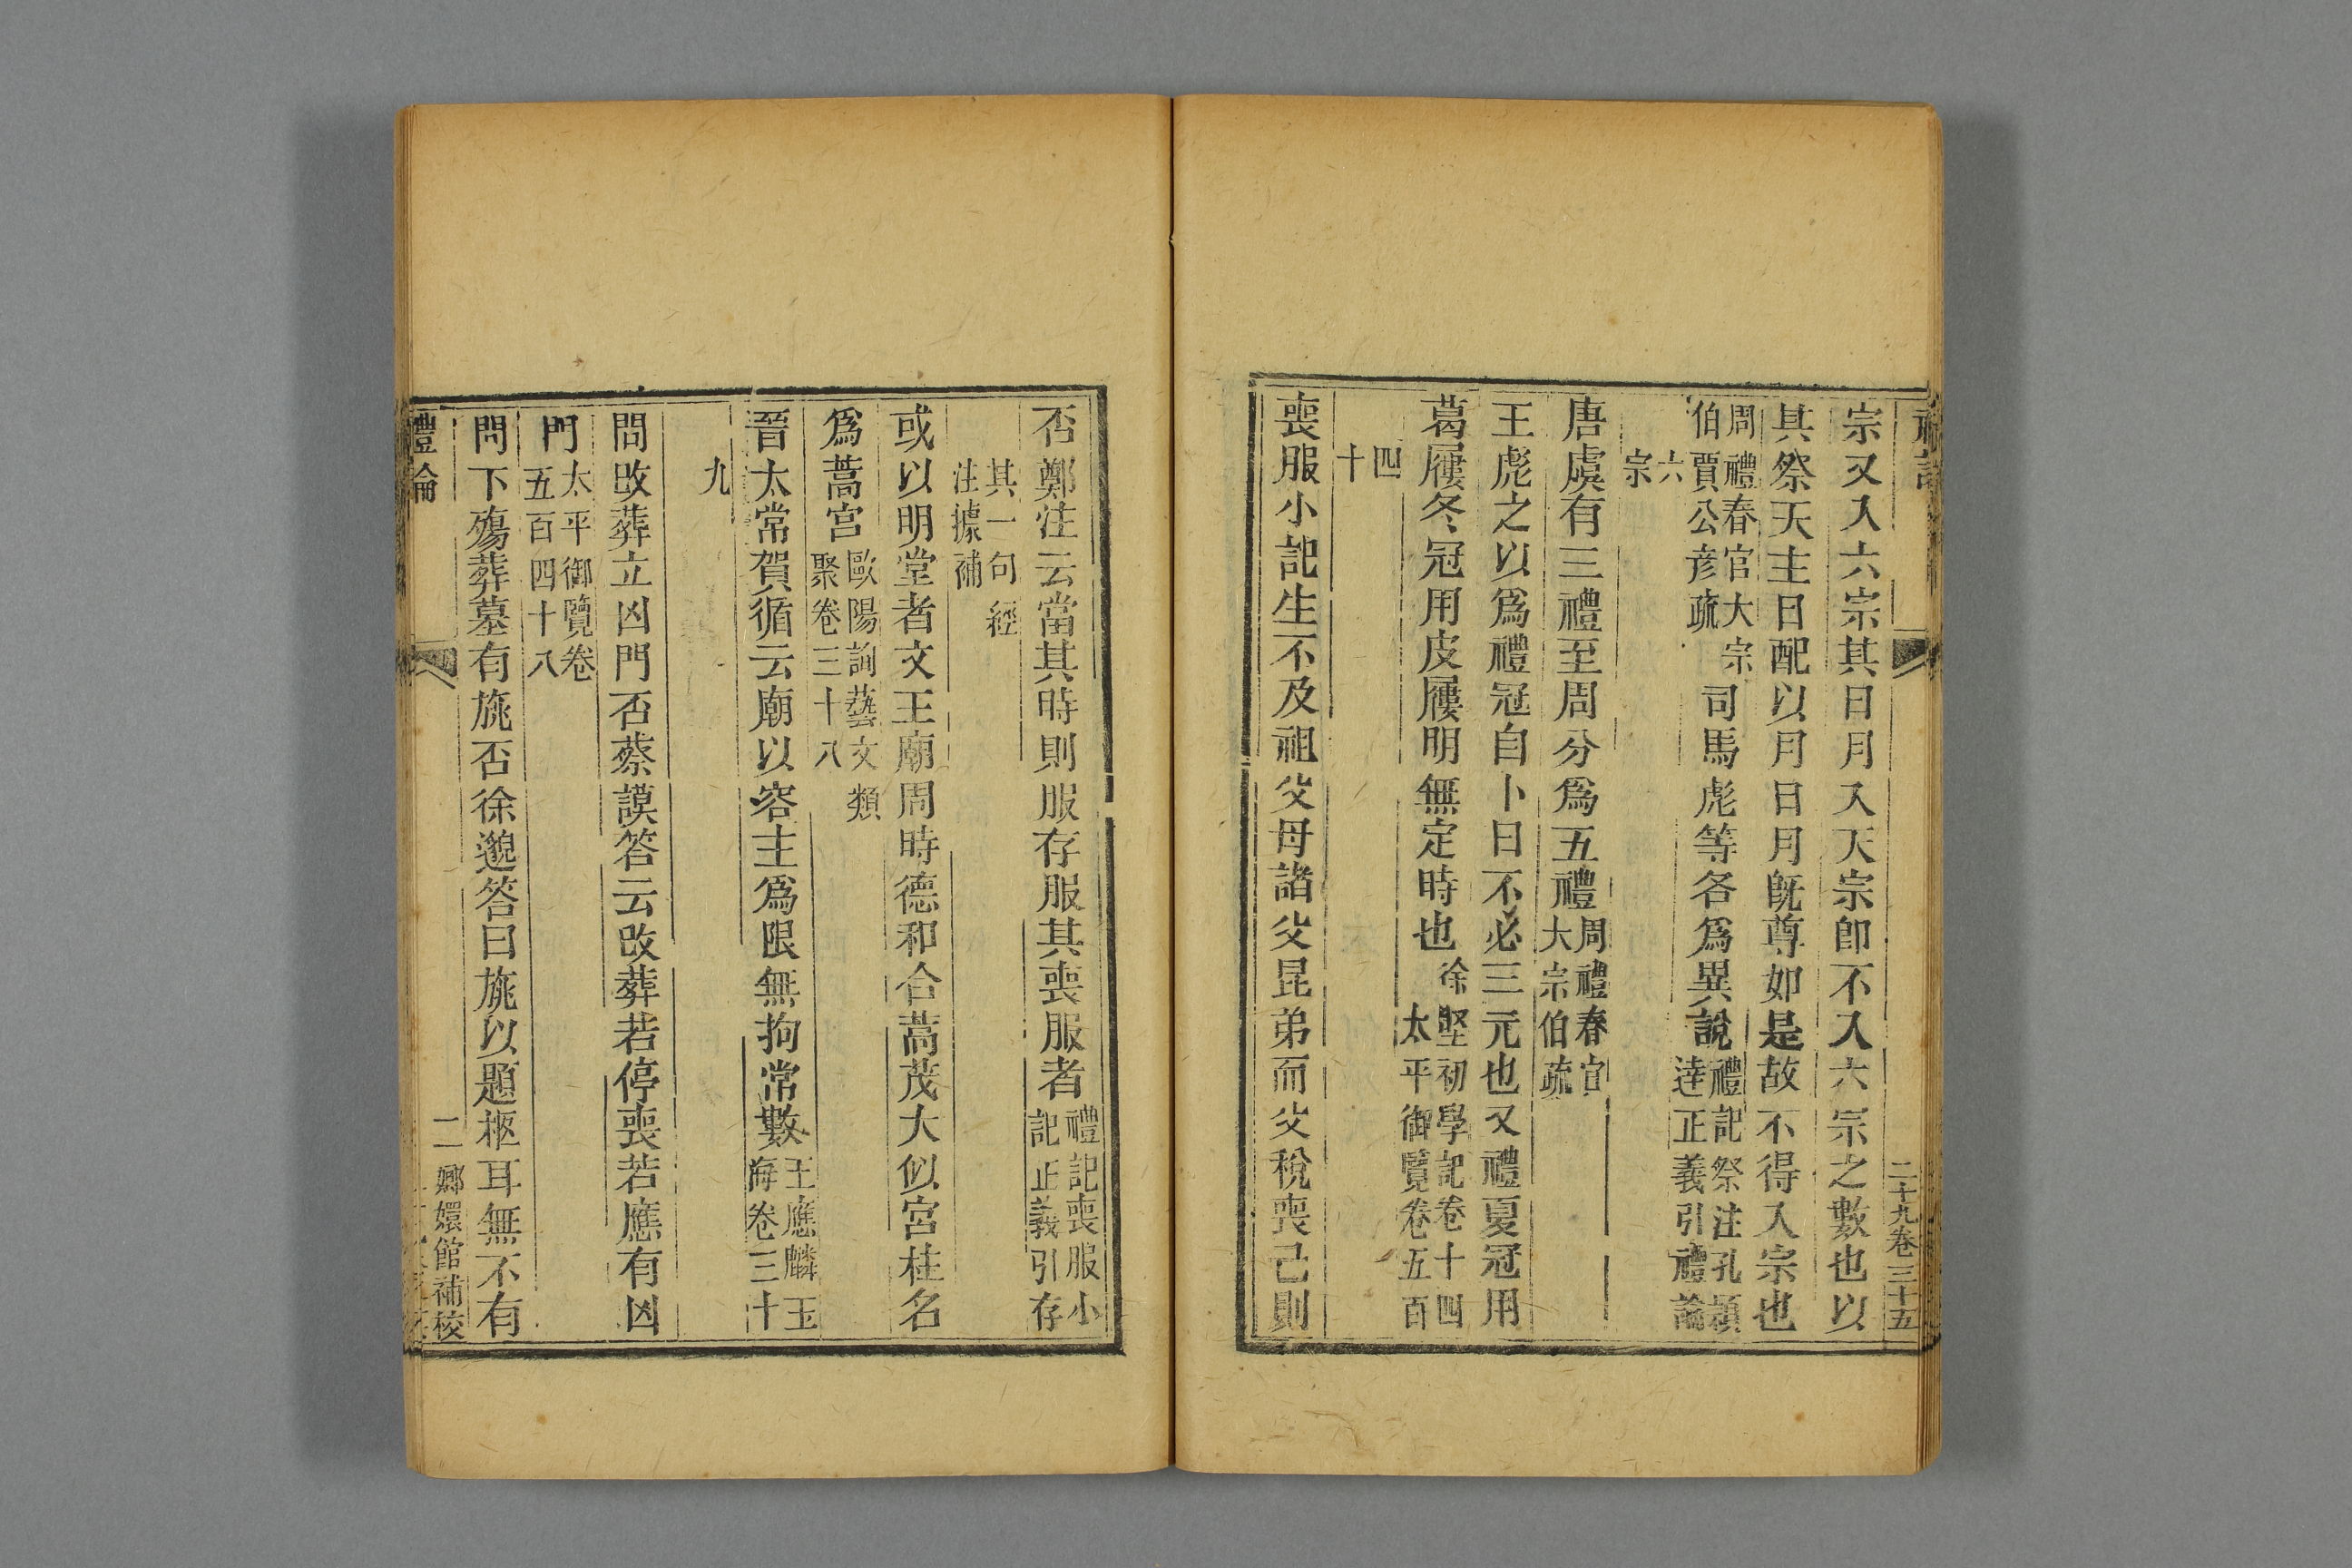 二十九卷三十五
宗又入六宗其日月又天宗卽不入六宗之數也以
其祭天主日配以月日月旣尊如是故不得入宗也
周禮春官大宗
伯賈公彦疏
司馬彪等各爲異說
禮記祭注孔穎
達正義引禮論
六
宗
唐虞有三禮至周分爲五禮
周禮春官
大宗伯疏
王彪之以爲禮冠自卜日不必三元也又禮夏冠用
葛屨冬冠用皮屨明無定時也
徐堅初學記卷十四
太平御覽卷五百
四
十
喪服小記生不及祖父母諸父昆弟而父稅喪己則
否鄭注云當其時則服存服其喪服者
禮記喪服小
記正義引存
其一句經
注據補
或以明堂者文王廟周時德和合蒿茂大似宮柱名
爲蒿宮
歐陽詢藝文類
聚卷三十八
晉太常賀循云廟以容主爲限無拘常數
王應麟玉
海卷三十
九
問改葬立凶門否蔡謨答云改葬若停喪若應有凶
門
太平御覽卷
五百四十八
問下殤葬墓有旐否徐邈答曰旐以題柩耳無不有
禮論
二
嫏嬛館補校